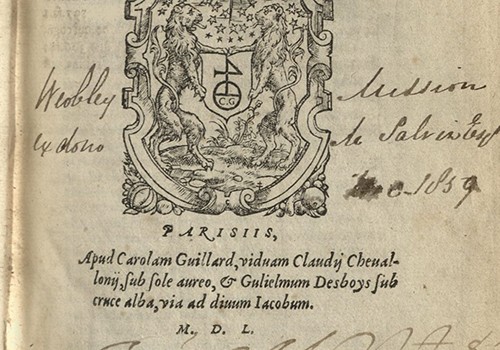 C.G
Weobley Mission
ex dono de Salvin Esqr
Dec 1859
PARISIIS,
Apud Carolam Guillard, viduam Claudij Cheual-
lonij, sub sole aureo, & Gulielmum Desboys sub
cruce alba, via ad diuum Iacobum.
M. D. L.